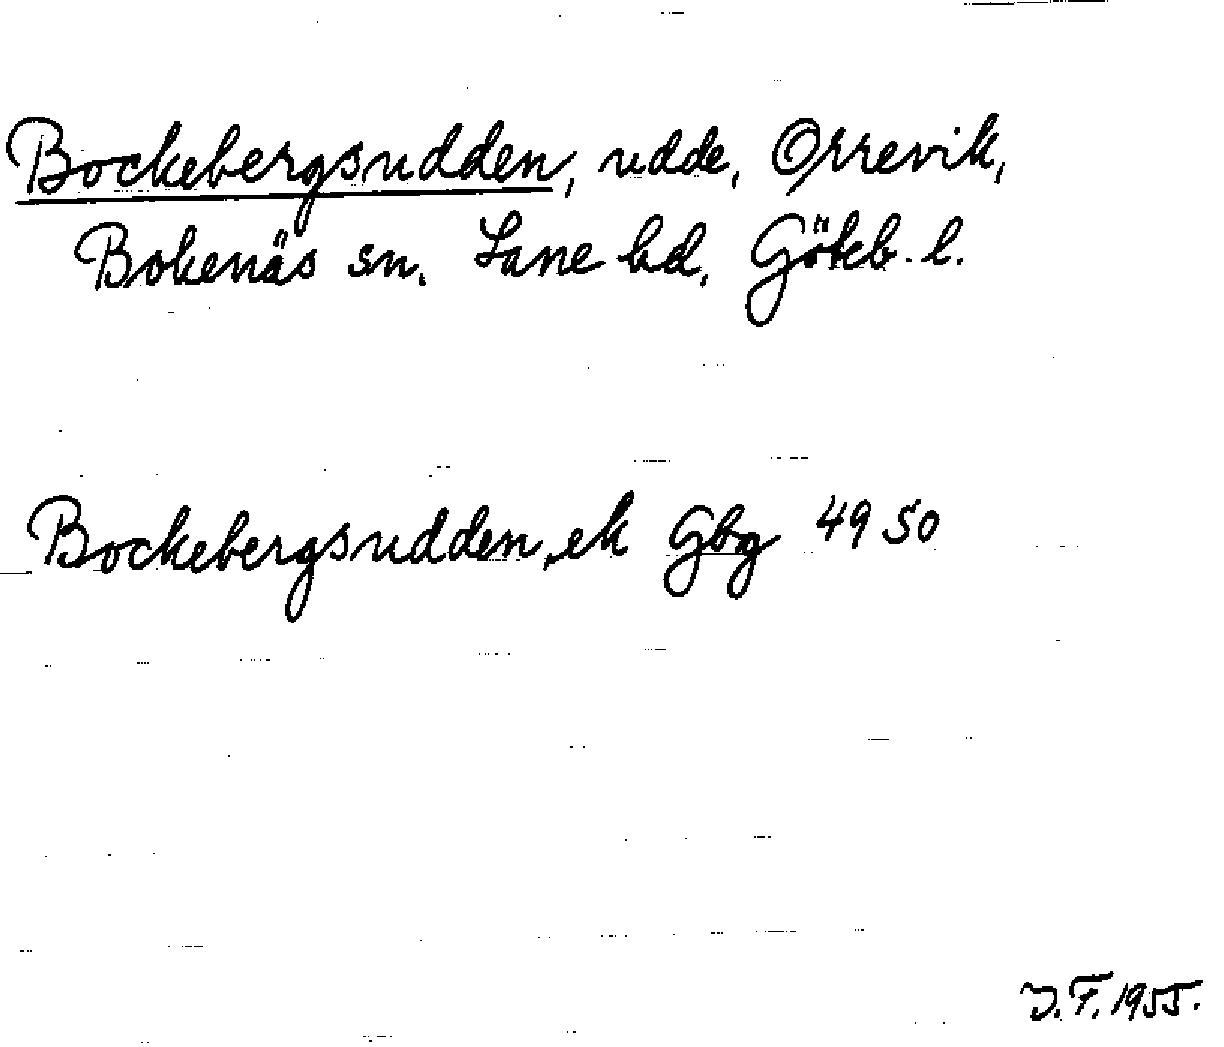 Bockebergsudden, udde, Orrevik,
Bokenäs sn. Lane hd, Göteb. l.
Bockebergsudden, ek Gbg 49 50
J.F. 1955.